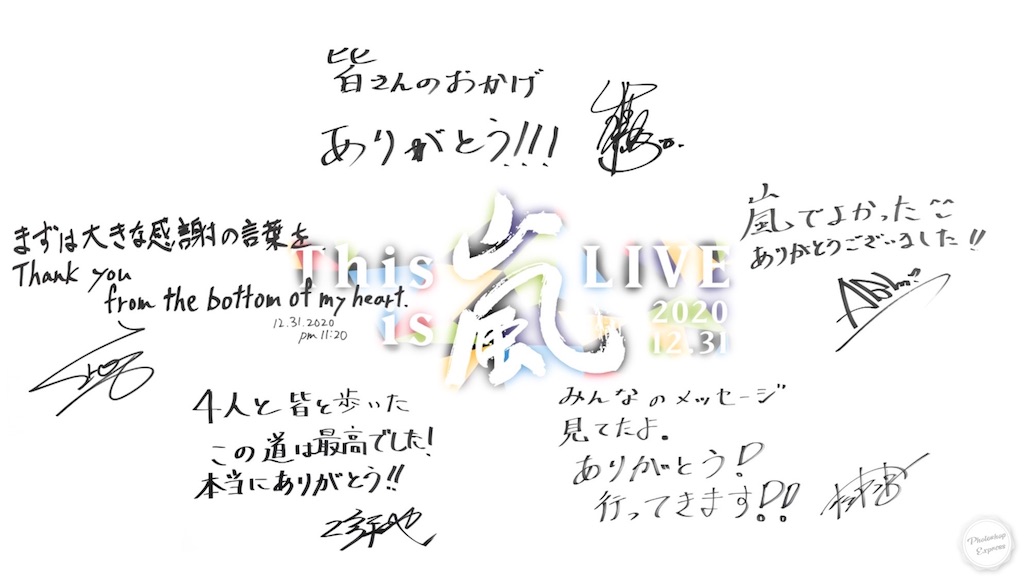 皆さんのおかげ
ありがとう!!!
まずは大きな感謝の言葉を
Thank you
from the bottom of my heart.
12.31.2020
pm 11:20
This is 嵐 LIVE
2020
12.31
嵐でよかった^^
ありがとうございました!!
4人と皆と歩いた
この道は最高でした!
本当にありがとう!!
みんなのメッセージ
見てたよ。
ありがとう!
行ってきます!!
Photoshop
Express